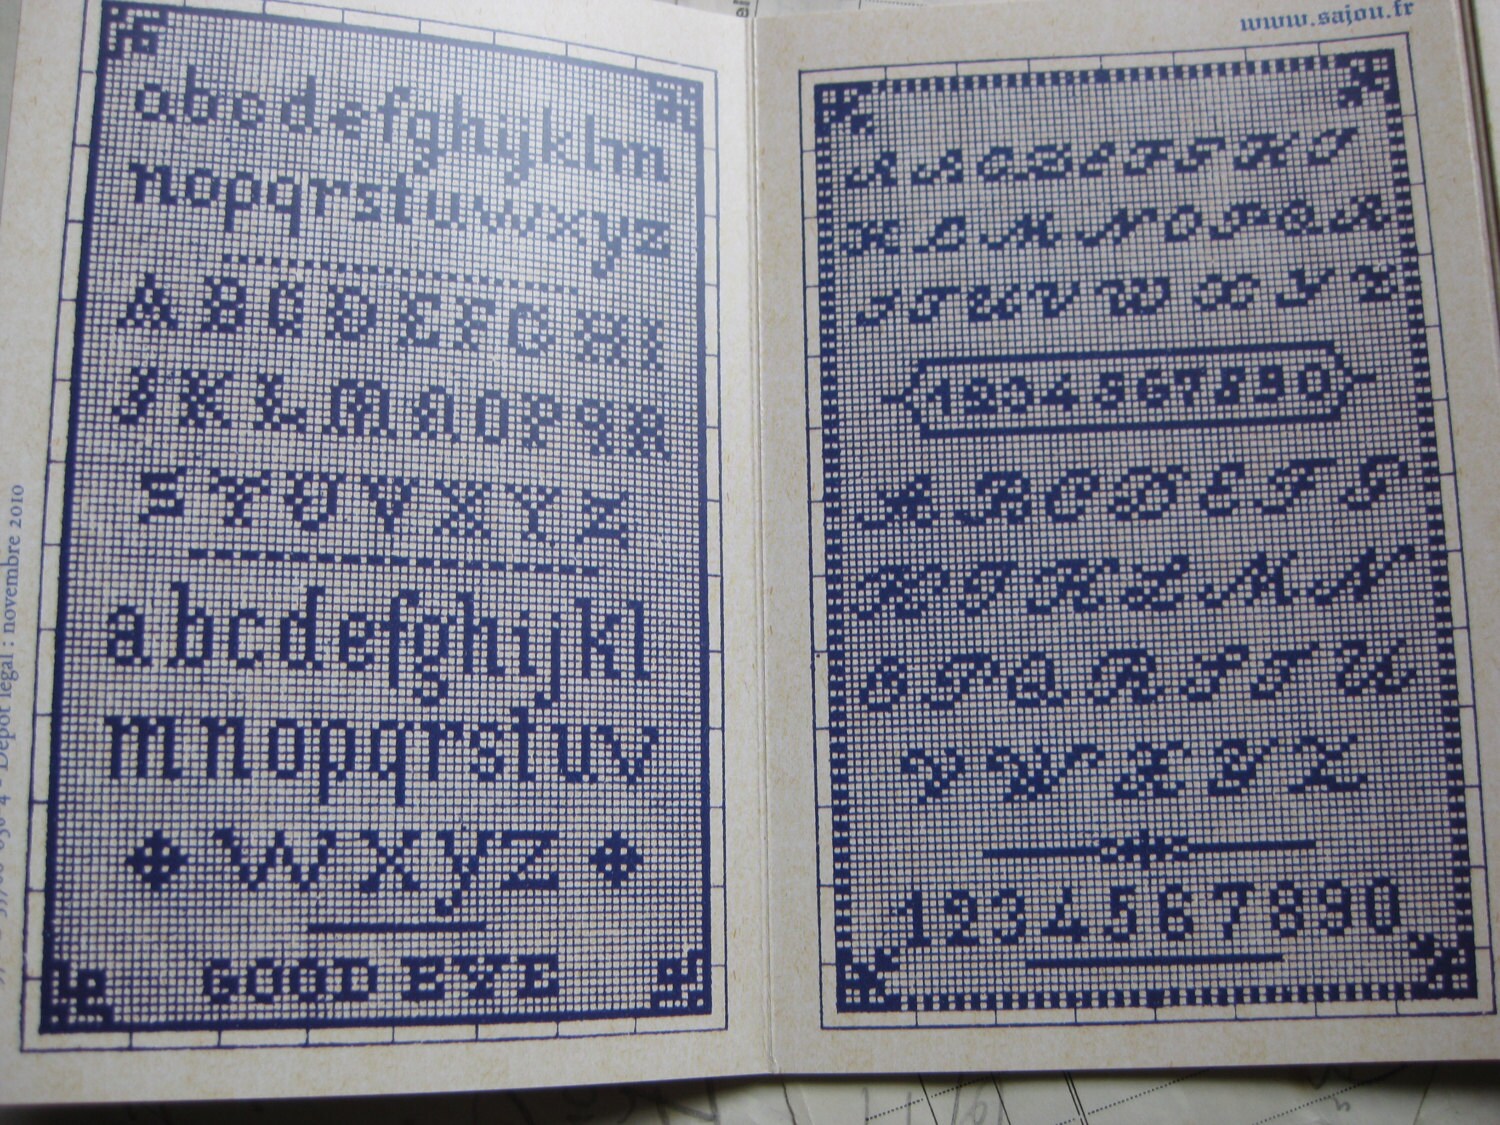 abcdefghijklm
nopqrstuvwxyz
ABCDEFGHI
JKLMNOPQR
STUVXYZ
abcdefghijkl
mnopqrstuv
wxyz
GOOD BYE
Dépôt légal : novembre 2010
www.sajou.fr
A B C D E F G H I
K L M N O P Q R
S T U V W X Y Z
1234567890
A B C D E F G
H I K L M N
O P Q R S T U
V W X Y Z
1234567890